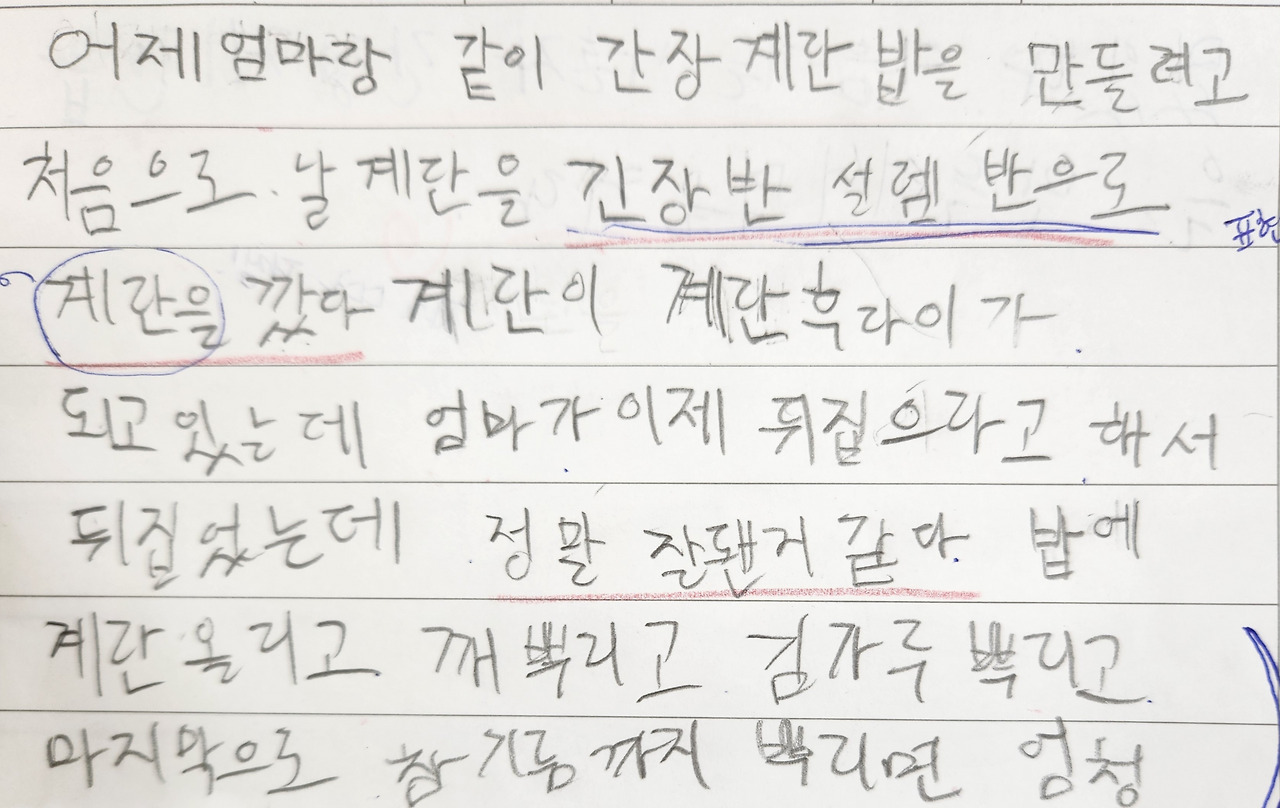 어제 엄마랑 같이 간장 계란 밥을 만들려고
처음으로 날 계란을 긴장 반 설렘 반으로
표현
계란을 깠다 계란이 계란후라이가
되고 있는데 엄마가 이제 뒤집으라고 해서
뒤집었는데 정말 잘됀거 같다 밥에
계란 올리고 깨 뿌리고 김가루 뿌리고
마지막으로 참기름까지 뿌리면 엄청